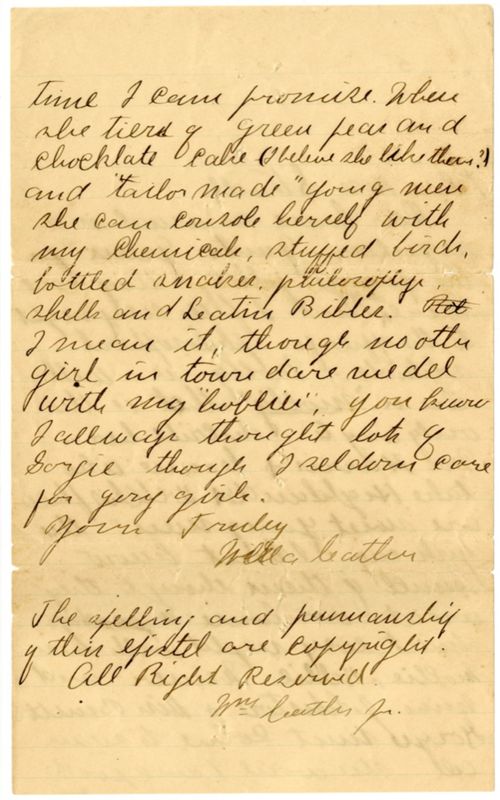 time I can promise. When
she tierd of green peas and
chocklate cake (I believe she like them?)
and "tailor made" young men
she can consols herself with
my chemicals, stuffed birds,
bottled snakes, philosophy,
shells and Leatin Bibles.
I mean it, though no other
girl in town dare medel
with my "hobbies", you know
I allways thought lots of
Gorgie though I seldom care
for gorg girls.
Yours Truley
Willa Cather
The spelling and penmanship
of this epistel are copyright.
All Right Reserved.
Wm Cather jr.